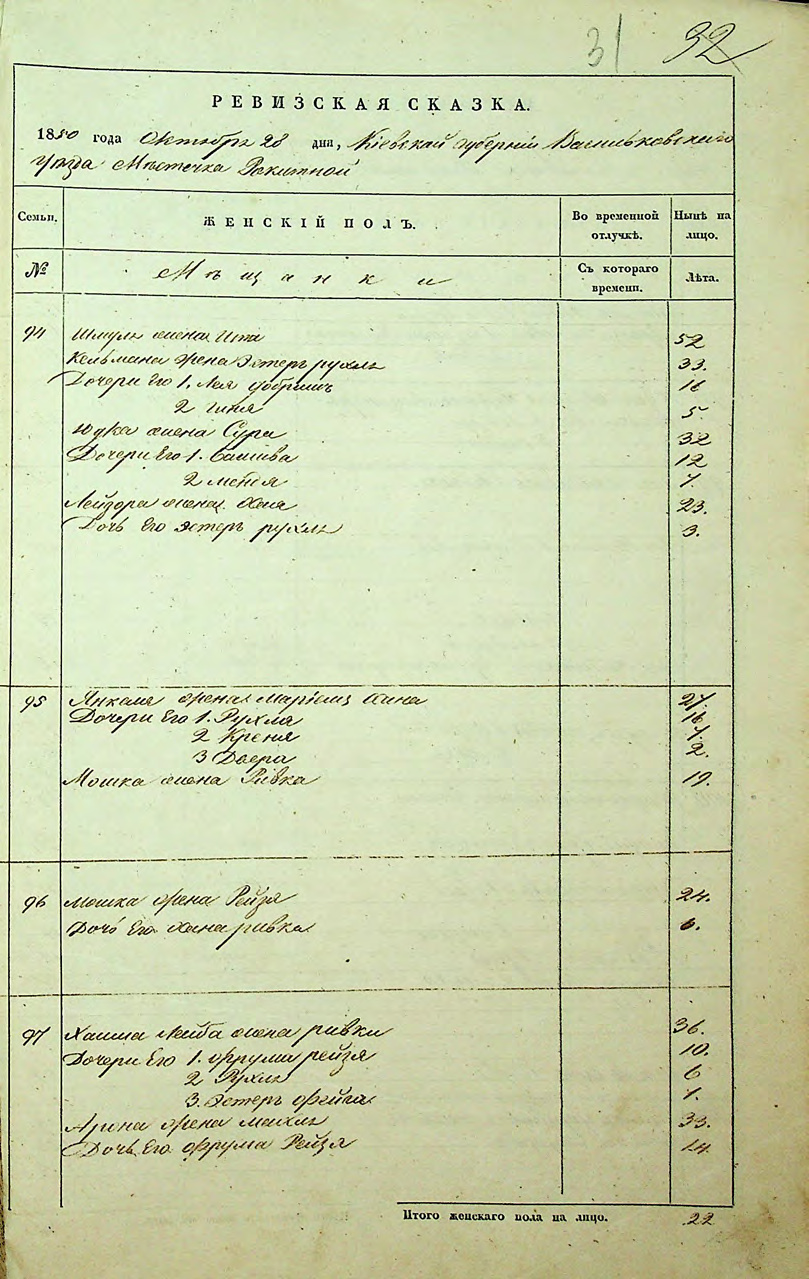 31 32
РЕВИЗСКАЯ СКАЗКА.
1850 года Октября 28 дня, Кіевской губерніи Васильковскаго
уезда Местечка Ракитной
Семьи. ЖЕНСКІЙ ПОЛЪ. Во временной отлучкѣ. Нынѣ на лицо.
№ Мѣщанки Съ котораго времени. Лѣта.
94 Шмуля жена Ита 52
Кельмана жена Эстеръ рухль 33.
Дочери Его 1. Лея 
2 5
Юдка жена Сура 32
Дочери Его 1. 12
2 7.
Лейзора жена Хая 23.
Дочь Его Эстеръ рухль 3.
95 Янкеля жена Хана 27.
Дочери Его 1. Рухля 16.
2 Креня 7.
3 Двера 2.
Мошка жена Ривка 19.
96 Мошка жена Рейзя 24.
Дочь Его Хана ривка 6.
97 Хаима Лейба жена ривка 36.
Дочери Его 1. фрума рейзя 10.
2 Рухль 6
3. Эстеръ фейга 1.
Арона жена 33.
Дочь Его фрума Рейзя 14
Итого женскаго пола на лицо. 22